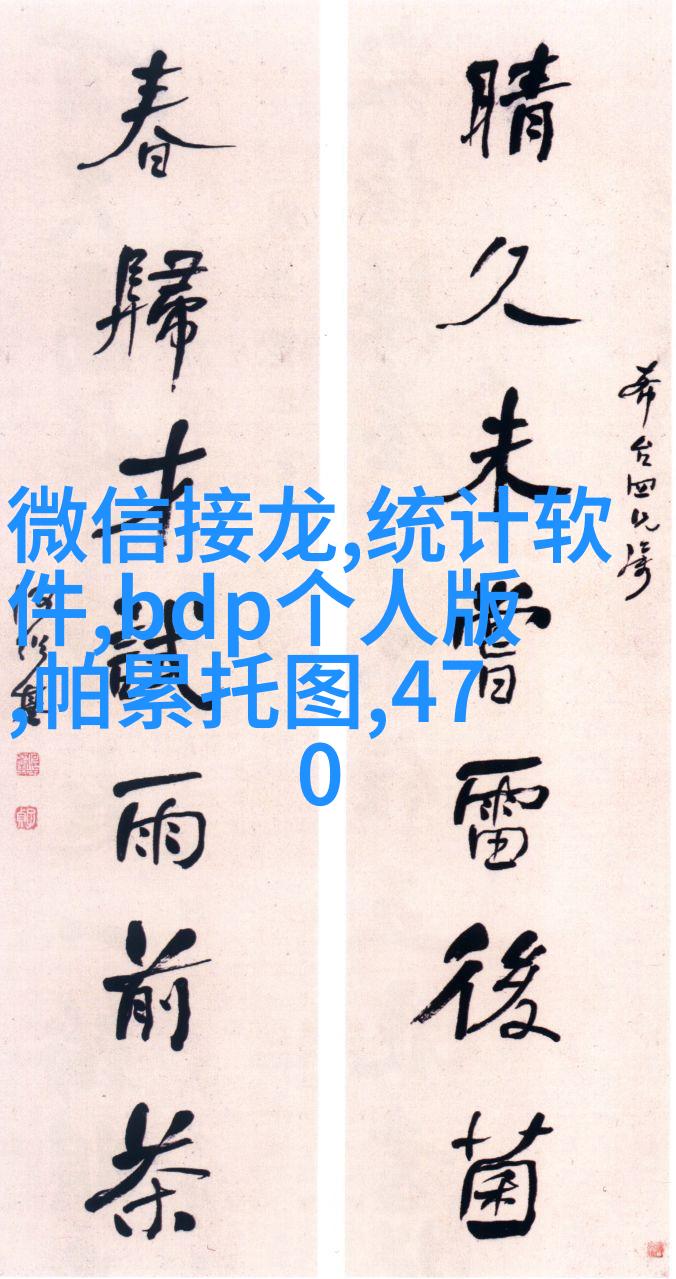 晴久未嘗雷後菌
春歸才試雨前茶
微信接龙,统计软
件,bdp个人版
,帕累托图,47
0